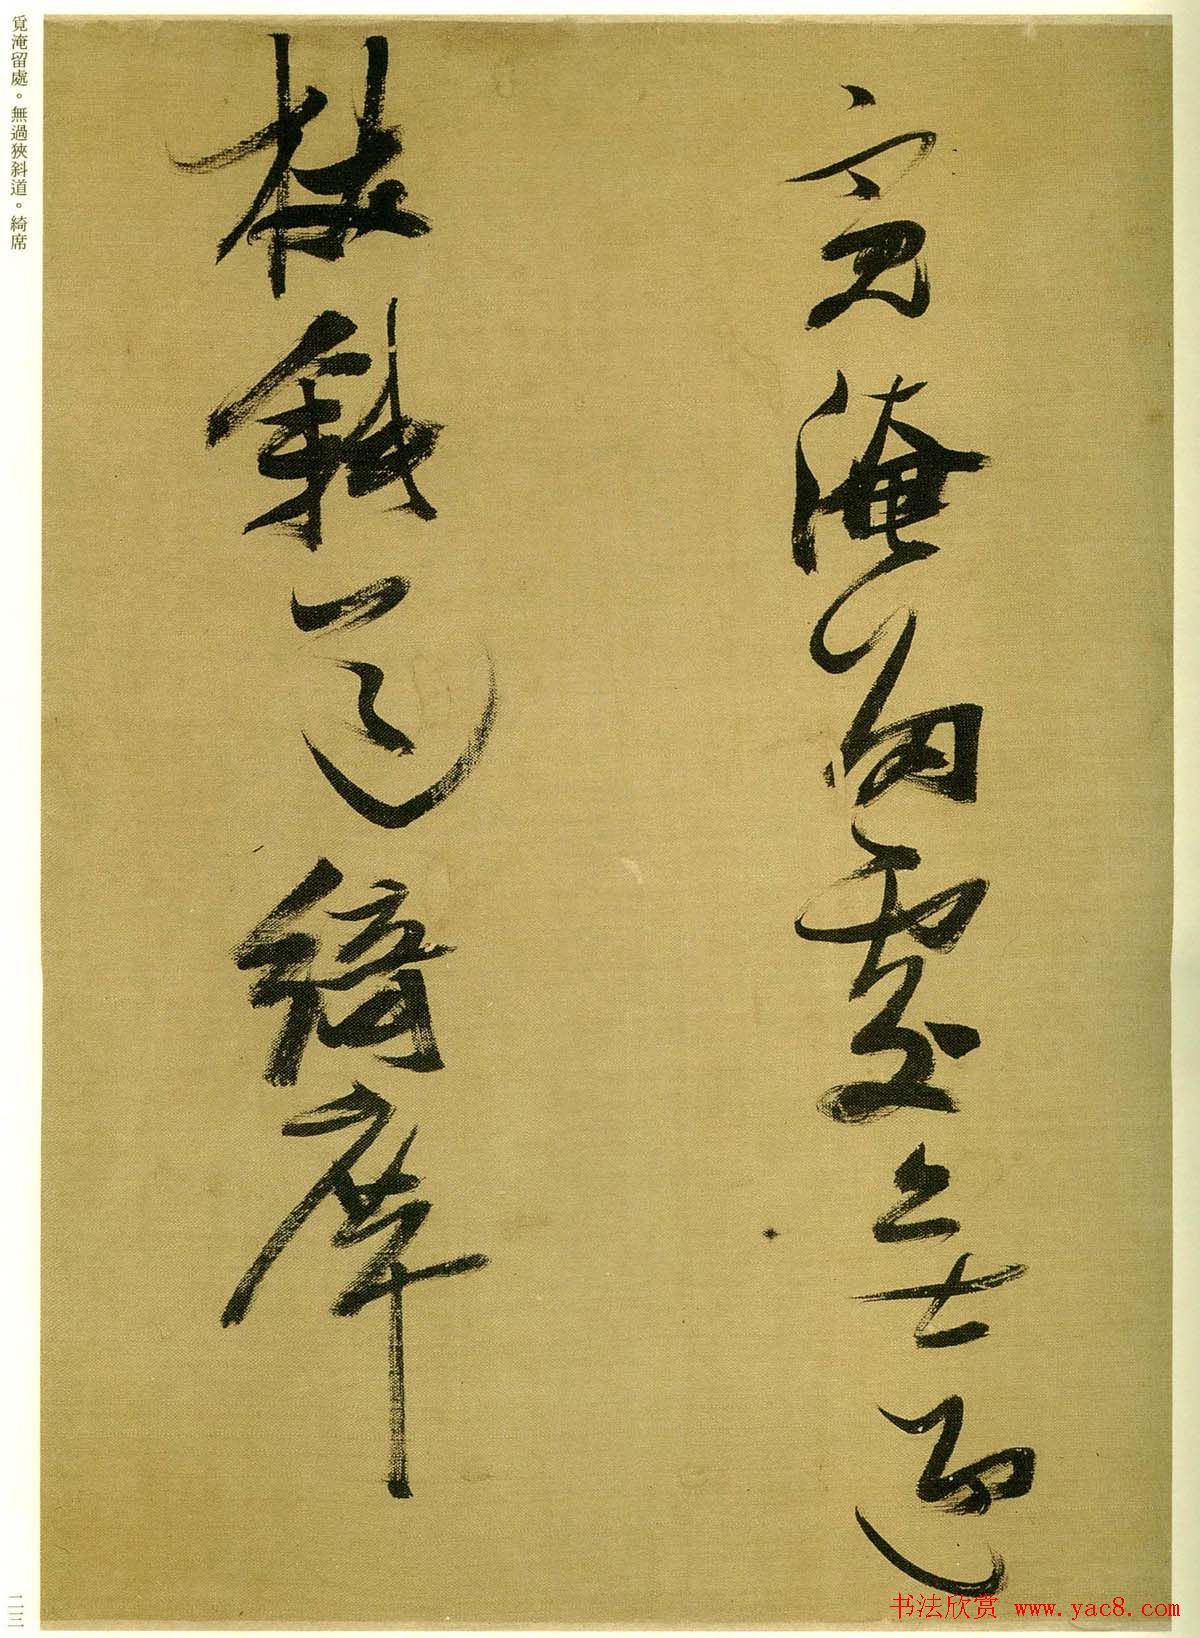 覓淹留處無過
狹斜道綺席
覓淹留處。無過狹斜道。綺席
二三
书法欣赏 www.yac8.com